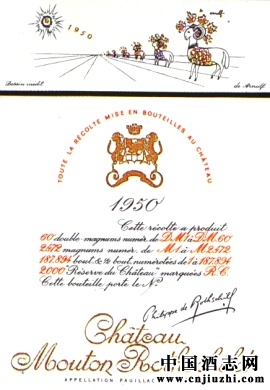 1950
Dessin inédit
de Arnulf
TOUTE LA RÉCOLTE MISE EN BOUTEILLES AU CHÂTEAU
1950
Cette récolte a produit
60 double-magnums numér. de D.M 1 à D.M. 60
2.572 magnums numér. de M 1 à M 2.572
187.894 bout. & ½ bout. numérotées de 1 à 187.894
2000 "Réserve du Château" marquées R.C.
Cette bouteille porte le No
Philippe de Rothschild
Château
Mouton Rothschild
APPELLATION PAUILLAC
中国酒志网
www.cnjiuzhi.com